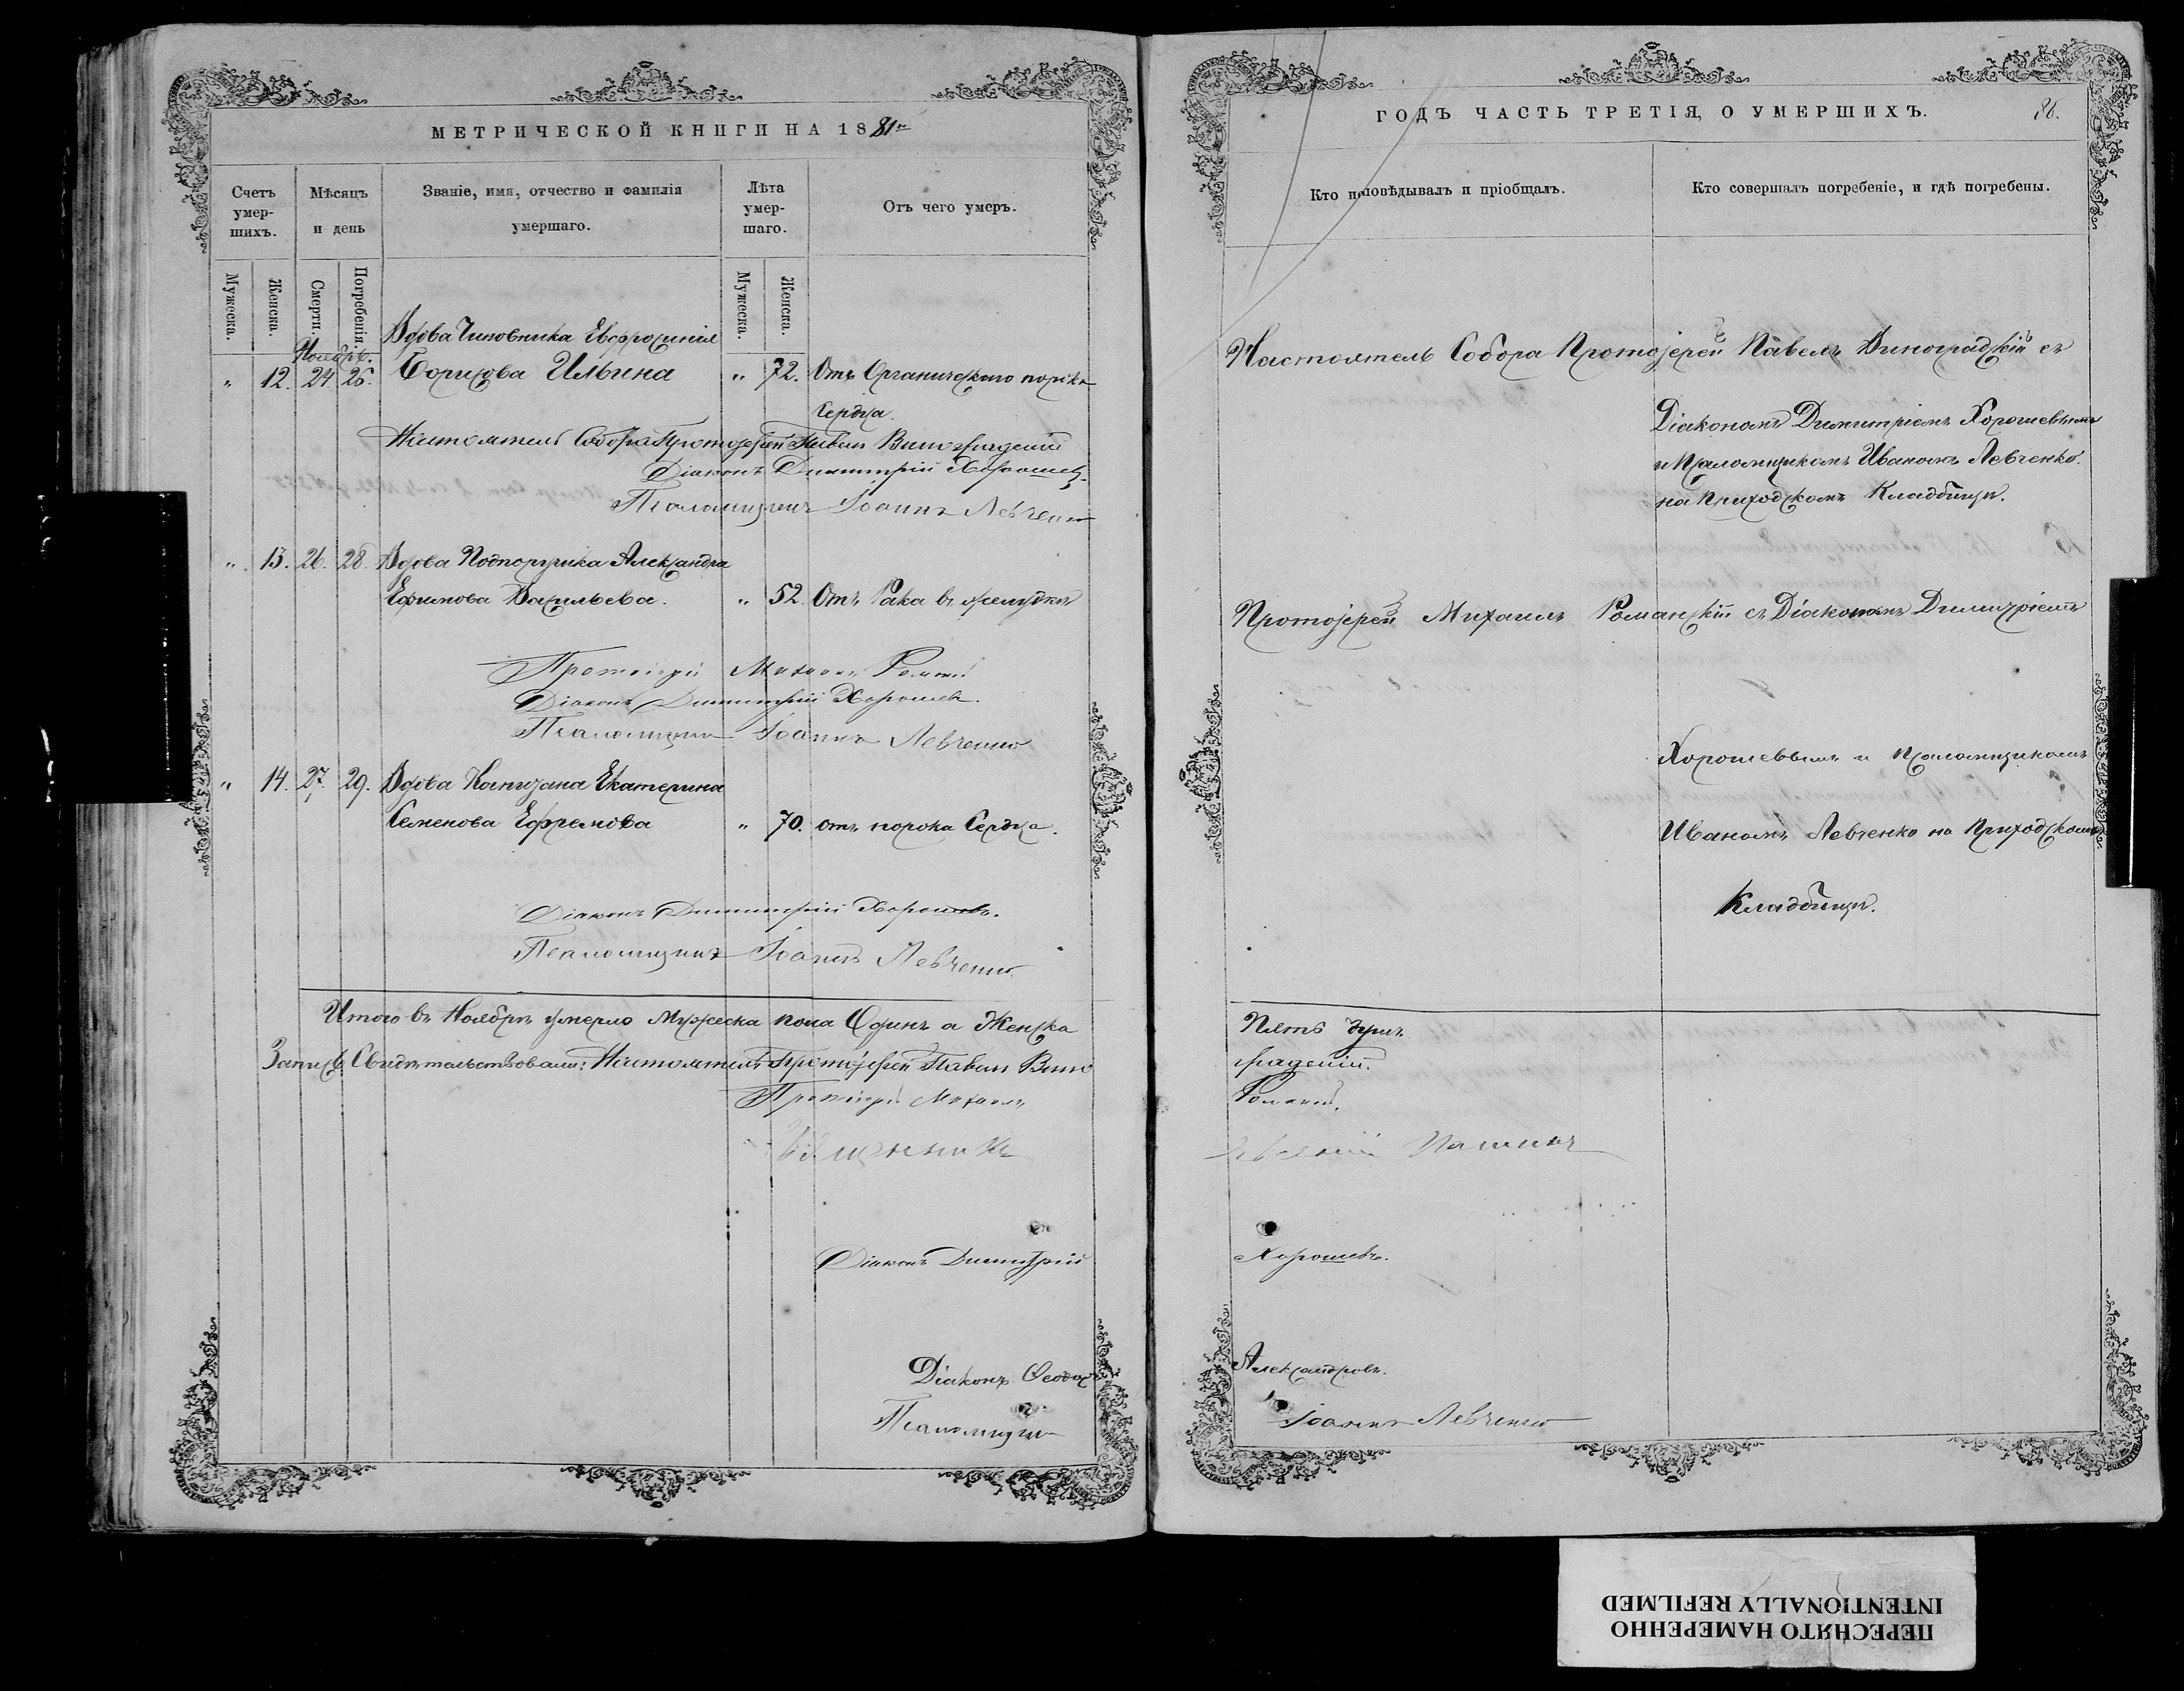 МЕТРИЧЕСКОЙ КНИГИ НА 1881й
Счетъ умер-шихъ.
Мѣсяцъ и день
Званіе, имя, отчество и фамилія умершаго.
Лѣта умер-шаго.
Отъ чего умеръ.
Мужеска.
Женска.
Смерти.
Погребенія.
Мужеска.
Женска.
Ноябрь.
Вдова Чиновника Евфросинія
" 12. 24 26. Борисова Ильина " 72. Отъ Органическаго порока
Сердца.
Настоятель Собора Протоіерей Павелъ Виноградскій
Діаконъ Димитрій Хорошевъ.
Псаломщикъ Іоаннъ Левченко
" 13. 26. 28. Вдова Подпоручика Александра
Ефимова Васильева. " 52. Отъ Рака въ желудкѣ
Протоіерей Михаилъ
Діаконъ Димитрій Хорошевъ.
Псаломщикъ Іоаннъ Левченко
" 14. 27. 29. Вдова Капитана Екатерина
Семенова Ефремова " 70. отъ порока Сердца.
Діаконъ Димитрій Хорошевъ.
Псаломщикъ Іоаннъ Левченко
Итого въ Ноябрѣ умерло Мужеска пола Одинъ а Женска
Запись Свидѣтельствовали: Настоятель Протоіерей Павелъ Вино
Протоіерей Михаилъ
Священникъ
Діаконъ Димитрій
Діаконъ Феодоръ
Псаломщикъ
ГОДЪ ЧАСТЬ ТРЕТІЯ, О УМЕРШИХЪ.
86.
Кто исповѣдывалъ и пріобщалъ.
Кто совершалъ погребеніе, и гдѣ погребены.
Настоятель Собора Протоіерей Павелъ Виноградскій съ
Діакономъ Димитріемъ Хорошевымъ
и Псаломщикомъ Иваномъ Левченко.
на Приходскомъ Кладбищѣ.
Протоіерей Михаилъ Романскій съ Діакономъ Димитріемъ
Хорошевымъ и Псаломщикомъ
Иваномъ Левченко на Приходскомъ
Кладбищѣ.
Пять душъ
градскій.
Хорошевъ.
Александровъ.
Іоаннъ Левченко
ПЕРЕСНЯТО НАМЕРЕННО
INTENTIONALLY REFILMED